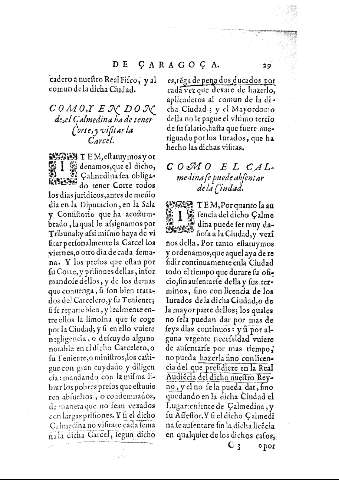 DE ÇARAGOÇA. 29
cadero a nuestro Real Fisco, y al
comun de la dicha Ciudad.
COMO, Y EN DON
de, el Çalmedina ha de tener
Corte, y visitar la
Carcel.
ITEM, estatuymos y or
denamos, que el dicho,
Çalmedina sea obliga
do tener Corte todos
los dias juridicos, antes de medio
dia en la Diputacion, en la Sala
y Consistorio que ha acostum-
brado, la qual le assignamos por
Tribunal: y assi mismo haya de vi
sitar personalmente la Carcel los
viernes, o otro dia de cada sema-
na. Y los presos que estan por
su Corte, y prisiones dellas, infor
mandose dellos, y de los demas
que convenga, si son bien trata-
dos del Carcelero, y su Teniente;
si se reparte bien, y igualmente en-
tre ellos la limosna que se coge
por la Ciudad, y si en ello uviere
negligencia, o descuydo alguno
notable en el dicho Carcelero, o
su Teniente, o ministros, los casti-
gue con gran cuydado y diligen
cia: mandando con la misma li-
brar los pobres presos que estuuie
ren absueltos, o condemnados,
de manera que no sean vexados
con largas prisiones. Y si el dicho
Çalmedina no visitare cada sema
na la dicha Carcel, segun dicho
es, tenga de pena dos ducados por
cada vez que dexare de hazerlo,
aplicaderos al comun de la di-
cha Ciudad; y el Mayordomo
della no le pague el ultimo tercio
de su salario, hasta que fuere aue-
riguado por los Iurados, que ha
hecho las dichas visitas.
COMO EL ÇAL-
medina se puede absentar
de la Ciudad.
ITEM, Por quanto la au
sencia del dicho Çalme
dina puede ser muy da-
ñosa a la Ciudad, y vezi
nos della. Por tanto estatuymos
y ordenamos, que aquel aya de re
sidir continuamente en la Ciudad
todo el tiempo que durare su ofi-
cio, sin ausentarse della y sus ter-
minos, sino con licencia de los
Iurados de la dicha Ciudad, o de
la mayor parte dellos; los quales
no se la puedan dar por mas de
seys dias continuos: y si por al-
guna urgente necessidad uviere
de ausentarse por mas tiempo,
no pueda hazerla sino con licen-
cia del que presidiere en la Real
Audiencia del dicho nuestro Rey-
no, y el no se la pueda dar, sino
quedando en la dicha Ciudad el
Lugarteniente de Çalmedina, y
su Assessor. Y si el dicho Çalmedi
na se ausentare sin la dicha licēcia
en qualquier de los dichos casos,
C 3 o por